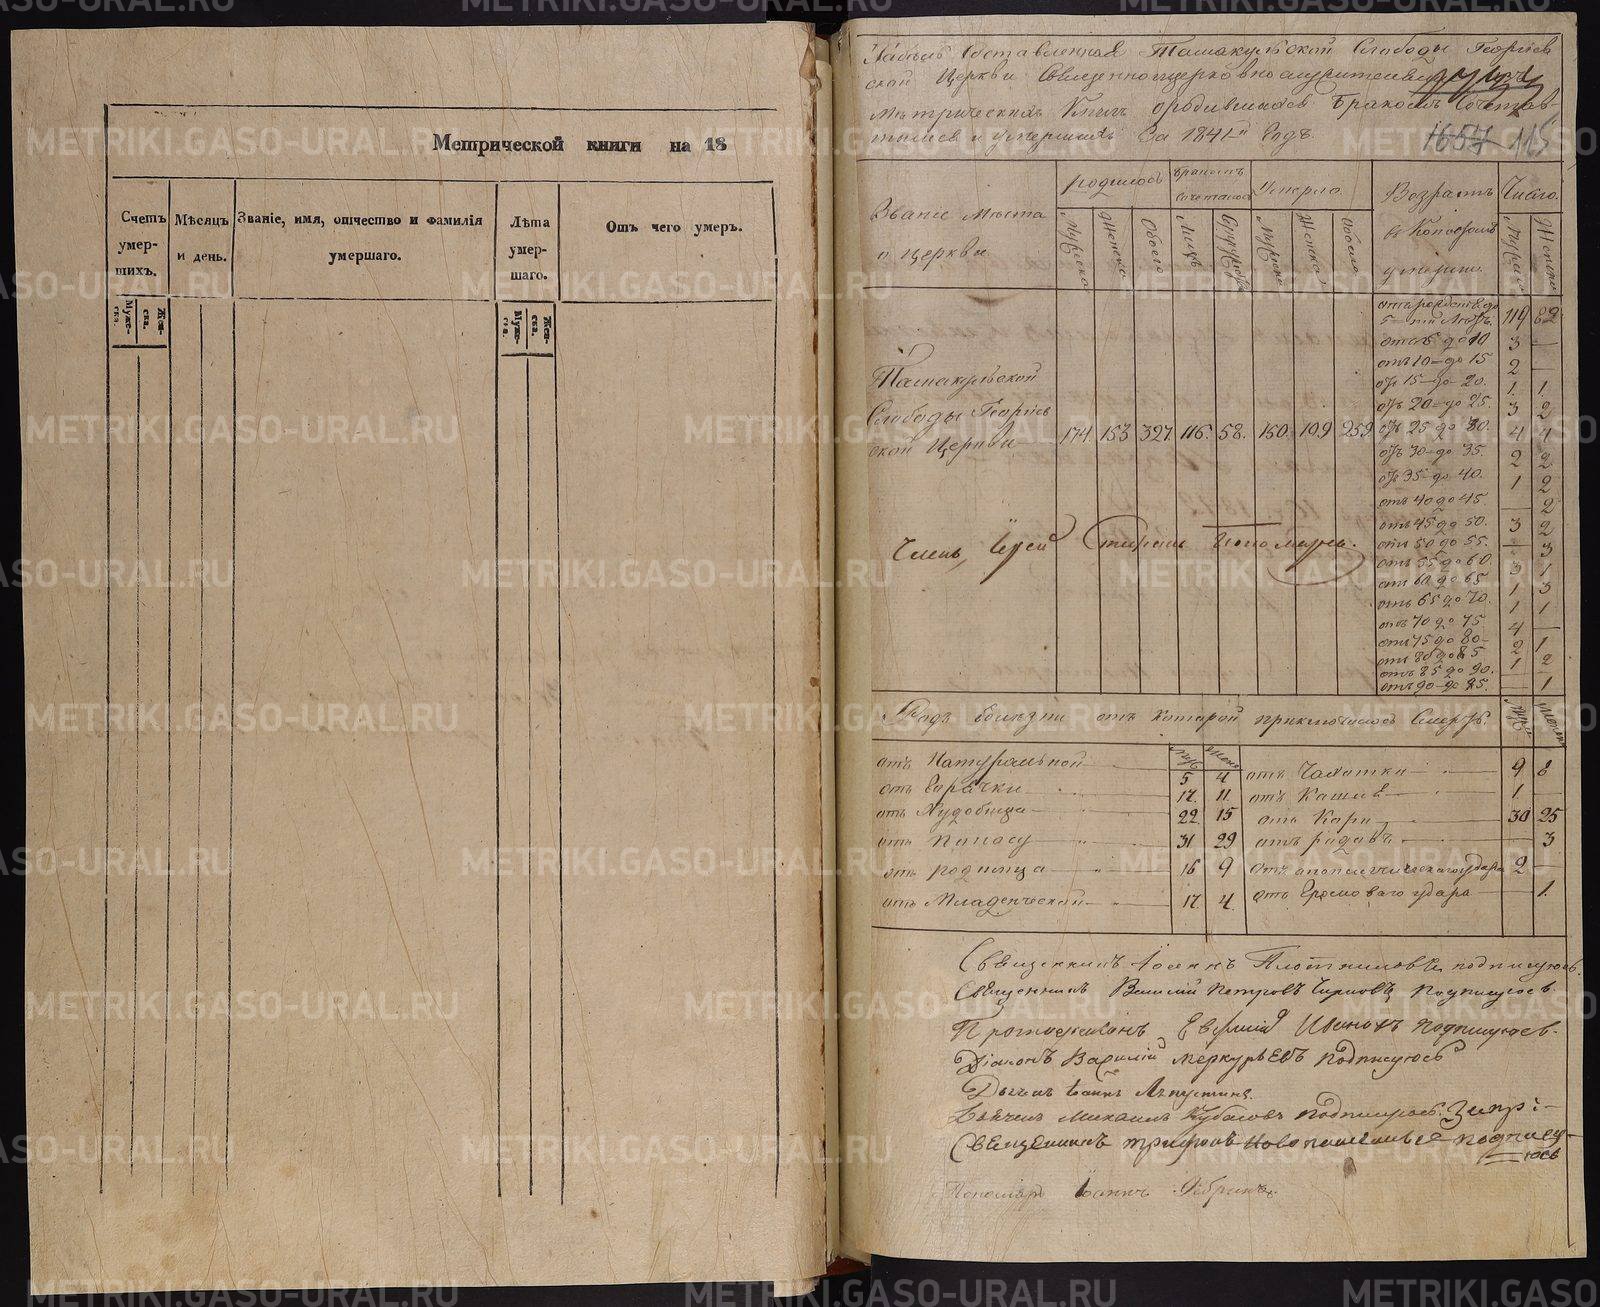 Метрической книги на 18
Счетъ умер-шихъ.
Мѣсяцъ и день.
Званіе, имя, отчество и фамилія умершаго.
Лѣта умер-шаго.
Отъ чего умеръ.
Муже-ска.
Жен-ска.
Муже-ска.
Жен-ска.
Табель составленная Тамакульской Слободы Георгіев
ской Церкви Священноцерковнослужителями изъ
Метрическихъ Книгъ о родившихся Бракомъ Сочетав-
шихся и умершихъ За 1841й Годъ.
1657 115
Званіе Мѣста
и Церкви
Родилось
Мужеска
Женска
Обоего
Бракомъ сочеталось
Лицъ
Супружѣ
Умерло.
Мужска
Женска
Обоего
Возрастъ
въ Которомъ
умерли
Число.
Мужска
Женска
Тамакульской
Слободы Георгіев
ской Церкви 174. 153 327. 116. 58. 150. 109 259.
отъ рожденія до
5-ти Лѣтъ. 119 82
отъ 5 до 10 3 —
отъ 10 до 15 2 —
отъ 15 до 20. 1. 1.
отъ 20 до 25. 3 2
отъ 25 до 30. 4 4
отъ 30 до 35. 2 2
отъ 35 до 40. 1 2
отъ 40 до 45 — 2
отъ 45 до 50. 3 2
отъ 50 до 55. — 3
отъ 55 до 60. 3 1
отъ 60 до 65 1 3
отъ 65 до 70. 1 1
отъ 70 до 75 4 —
отъ 75 до 80 2 1
отъ 80 до 85 1 2
отъ 85 до 90. — —
отъ 90 до 95. — 1
Членъ, Іерей Стефанъ Пономаревъ.
Родъ болѣзни отъ которой приключилась Смерть.
отъ Натуральной 5 4 отъ Чахотки 9 8
отъ Горячки 17. 11. отъ Кашля 1. —
отъ Худобища 22 15 отъ Кори 30 25
отъ Поносу 31 29 отъ родовъ — 3
отъ родимца 16 9 отъ апоплексическаго удара 2 —
отъ Младенческой 17. 4. отъ Громоваго удара — 1.
Священникъ Іоаннъ Плотниковъ подписуюсь.
Священникъ Василій Петровъ Чирковъ Подписуюсь
Протодіаконъ Евфимій Ивановъ подписуюсь.
Діаконъ Василій Меркурьевъ подписуюсь
Дьячекъ Іоаннъ Лапустинъ
Дьячекъ Михаилъ Кубасовъ подписуюсь.
Священникъ подпису-
юсь
Пономарь Іоаннъ
METRIKI.GASO-URAL.RU